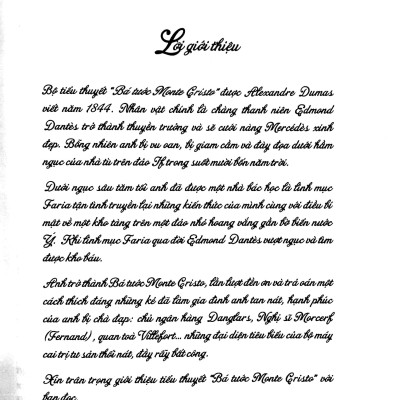 Lời giới thiệu
Bộ tiểu thuyết "Bá tước Monte Cristo" được Alexandre Dumas
viết năm 1844. Nhân vật chính là chàng thanh niên Edmond
Dantès trở thành thuyền trưởng và sẽ cưới nàng Mercédès xinh
đẹp. Bỗng nhiên anh bị vu oan, bị giam cầm và đày đọa dưới hầm
ngục của nhà tù trên đảo If, trong suốt mười bốn năm trời.
Dưới ngục sâu tăm tối anh đã được một nhà bác học là linh mục
Faria tận tình truyền lại những kiến thức của mình cùng với điều bí
mật về một kho tàng trên một đảo nhỏ hoang vắng gần bờ biển nước
Ý. Khi linh mục Faria qua đời Edmond Dantès vượt ngục và tìm
được kho báu.
Anh trở thành Bá tước Monte Cristo, lần lượt đền ơn và trả oán một
cách thích đáng những kẻ đã làm gia đình anh tan nát, hạnh phúc
của anh bị chà đạp: chủ ngân hàng Danglars, Nghị sĩ Morcerf
(Fernand), quan toà Villefort... những đại diện tiêu biểu của bộ máy
cai trị tư sản thối nát, đầy rẫy bất công.
Xin trân trọng giới thiệu tiểu thuyết "Bá tước Monte Cristo" với
bạn đọc.